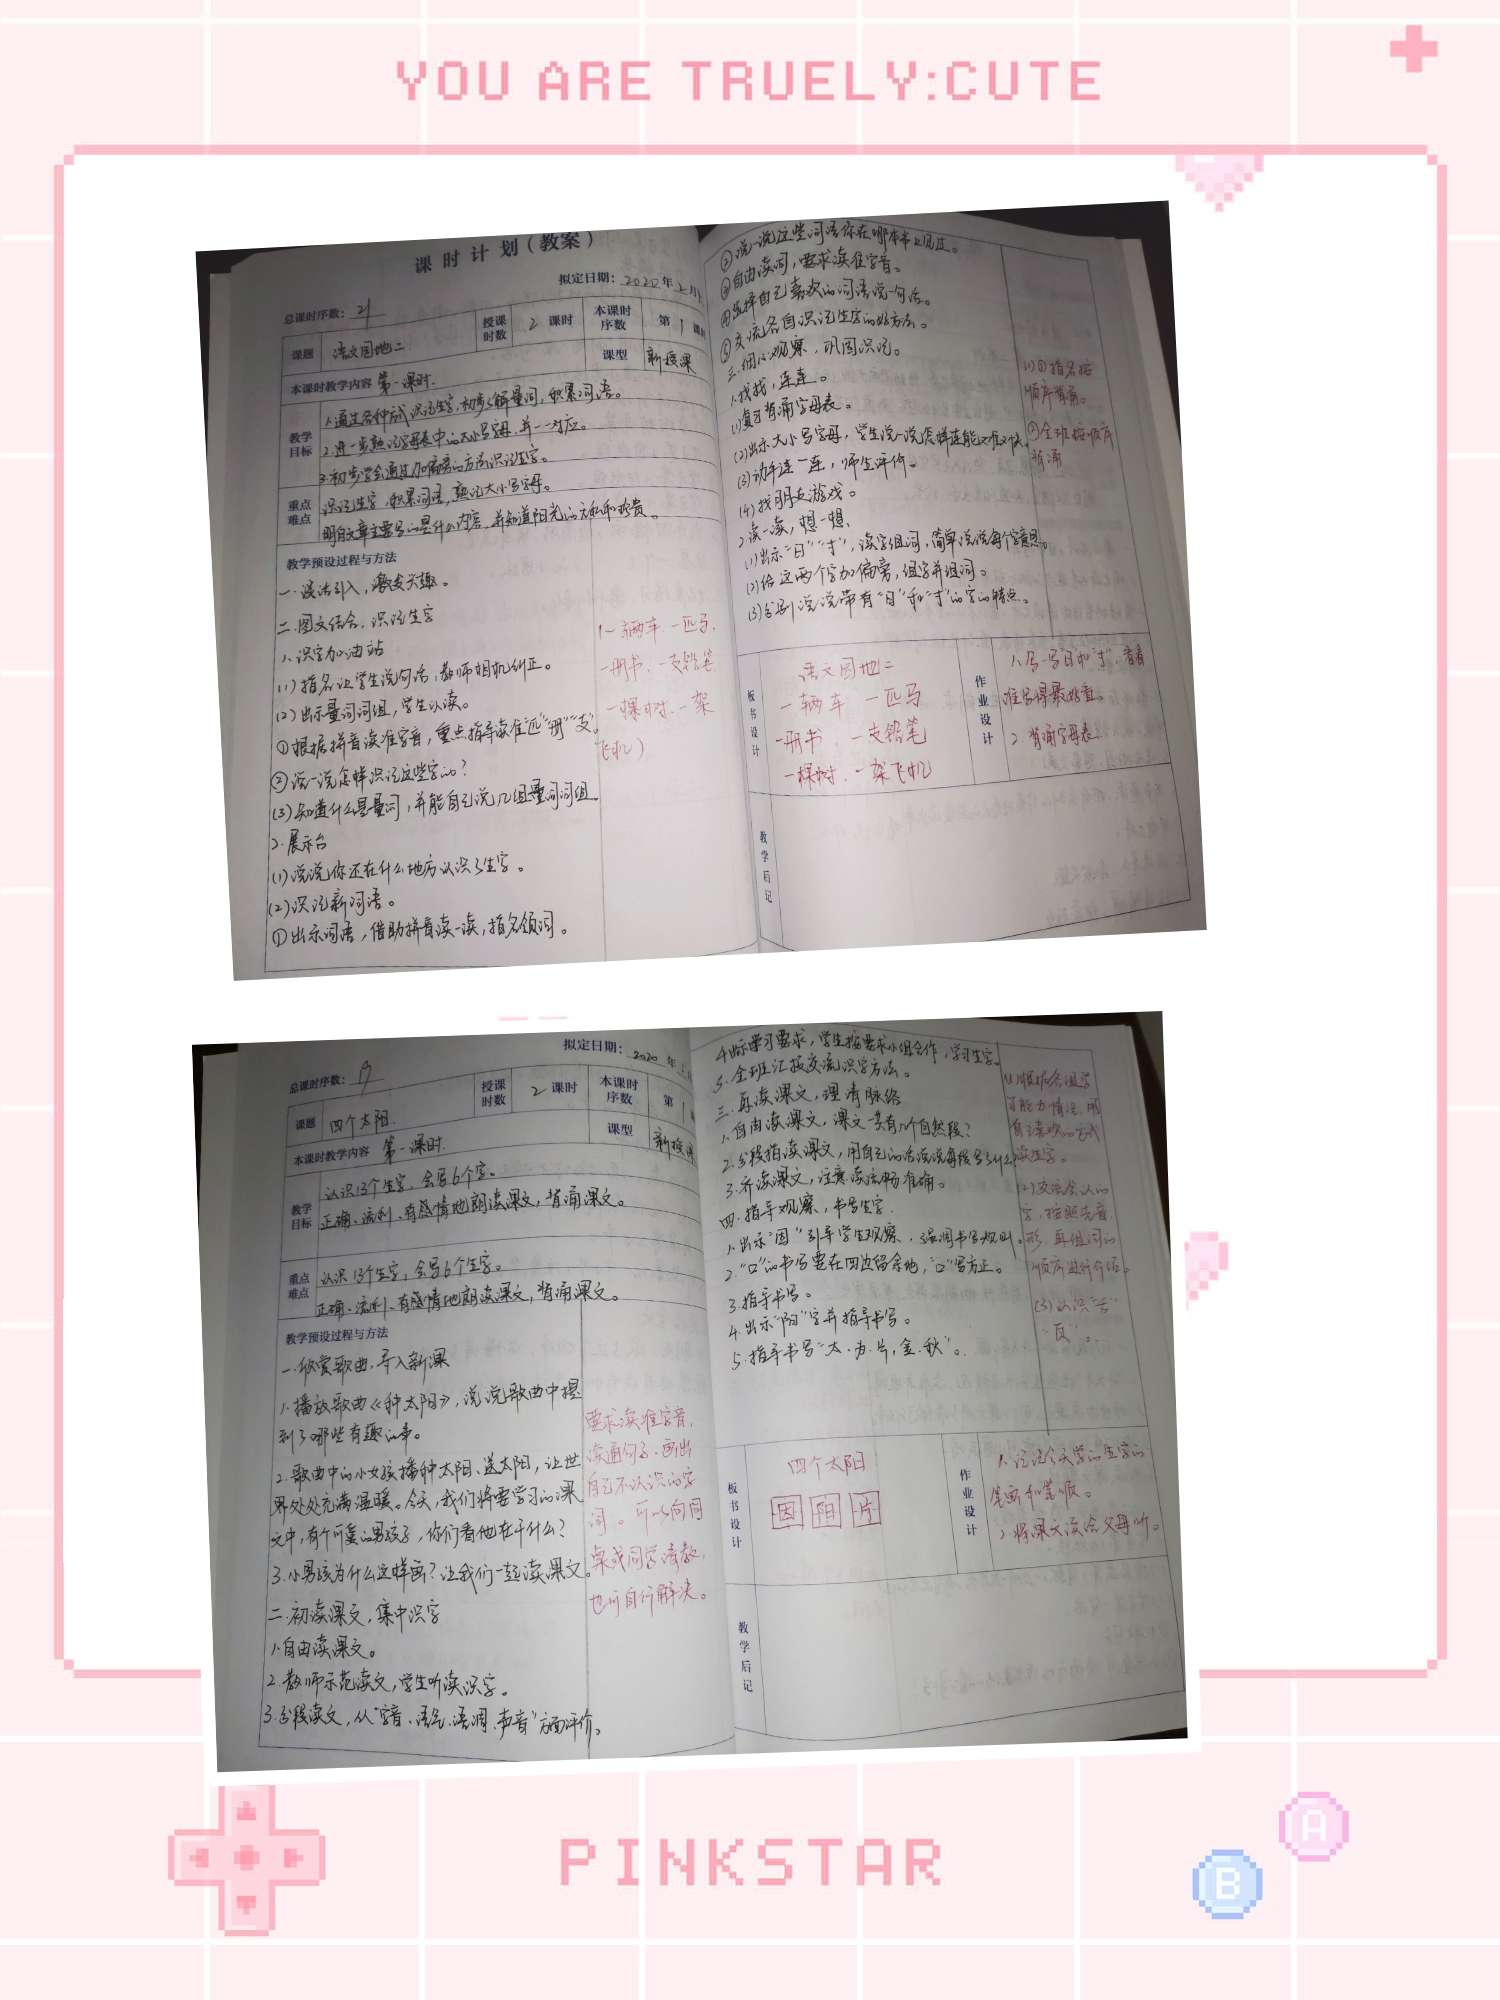 YOU ARE TRUELY:CUTE
课时计划(教案)
拟定日期: 2020年2月
总课时序数: 21
课题 语文园地二 授课时数 2 课时 本课时序数 第1课时
课型 新授课
本课时教学内容 第一课时.
教学目标
1.通过各种形式识记生字,初步了解量词,积累词语。
2.进一步熟记字母表中的大小写字母,并一一对应。
3.初步学会通过加偏旁的方法识记生字。
重点难点
识记生字,积累词语,熟记大小写字母。
明白文章主要写的是什么内容,并知道阳光的和珍贵。
教学预设过程与方法
一.谈话引入,激发兴趣。
二.图文结合,识记生字
1.识字加油站
(1)指名让学生说句话,教师相机纠正。
(2)出示量词词组,学生认读。
①根据拼音读准字音,重点指导读准“匹”“册”“支”。
②说一说怎样识记这些字的?
(3)知道什么是量词,并能自己说几组量词词组。
2.展示台
(1)说说你还在什么地方认识了生字。
(2)识记新词语。
①出示词语,借助拼音读一读,指名领词。
一辆车.一匹马.
一册书.一支铅笔
一棵树.一架
飞机)
②说一说这些词语你在哪本书上见过。
③自由读词,要求读准字音。
④选择自己喜欢的词语说一句话。
⑤交流各自识记生字的好方法。
三.细心观察,巩固识记。
1.找找,连连。
(1)复习背诵字母表。
(2)出示大小写字母,学生说一说怎样连能又准又快。
(3)动手连一连,师生评价。
(4)找朋友游戏。
2.读一读,想一想.
(1)出示“日”“寸”,读字组词,简单说说每个字意思。
(2)给这两个字加偏旁,组字并组词。
(3)分别说说带有“日”和“寸”的字的特点。
(1)①指名按
顺序背诵。
②全班按顺序
背诵
板书设计
语文园地二
一辆车 一匹马
一册书. 一支铅笔
一棵树. 一架飞机
作业设计
1.写一写“日”和“寸”,看看
谁写得最好看。
2.背诵字母表
教学后记
拟定日期: 2020年
总课时序数: 9
课题 四个太阳. 授课时数 2 课时 本课时序数 第1
课型 新授课
本课时教学内容 第一课时.
教学目标
认识13个生字,会写6个字。
正确、流利、有感情地朗读课文,背诵课文。
重点难点
认识13个生字,会写6个生字。
正确、流利、有感情地朗读课文,背诵课文。
教学预设过程与方法
一.欣赏歌曲,导入新课
1.播放歌曲《种太阳》,说说歌曲中提
到了哪些有趣的事。
2.歌曲中的小女孩播种太阳、送太阳,让世
界处处充满温暖。今天,我们将要学习的课
文中,有个可爱的男孩子,你们看他在干什么?
3.小男孩为什么这样画?让我们一起读课文。
二.初读课文,集中识字
1.自由读课文。
2.教师示范读文,学生听读识字。
3.分段读文,从“字音、语气、语调、声音”方面评价。
要求读准字音,
读通句子.画出
自己不认识的字
词。可以向同
桌或同学请教,
也可自行解决。
4.出示学习要求,学生按要求小组合作,学习生字。
5.全班汇报交流识字方法。
三.再读课文,理清脉络
1.自由读课文,课文一共有几个自然段?
2.分段指读课文,用自己的话说说每段写了什么?
3.齐读课文,注意读流畅准确。
四.指导观察,书写生字.
1.出示“因”引导学生观察,强调书写规则。
2.“口”的书写要在四边留余地,“口”写方正。
3.指导书写。
4.出示“阳”字并指导书写。
5.指导书写“太.为.片,金.秋”。
(1)根据各组学
习能力情况,用
自己喜欢的方式
读生字。
(2)交流会认的
字,按照先音,
形,再组词的
顺序进行介绍。
(3)认识“舌”
板书设计
四个太阳
因 阳 片
作业设计
1.记记今天学的生字的
笔画和笔顺。
2.将课文读给父母听。
教学后记
PINKSTAR
A
B